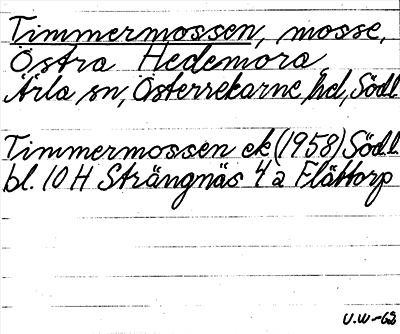 Timmermossen, mosse,
Östra Hedemora
Ärla sn, Österrekarne hd, Södl.
Timmermossen ek (1958) Södl.
bl. 10 H Strängnäs 4 a Flättorp
U.W-63